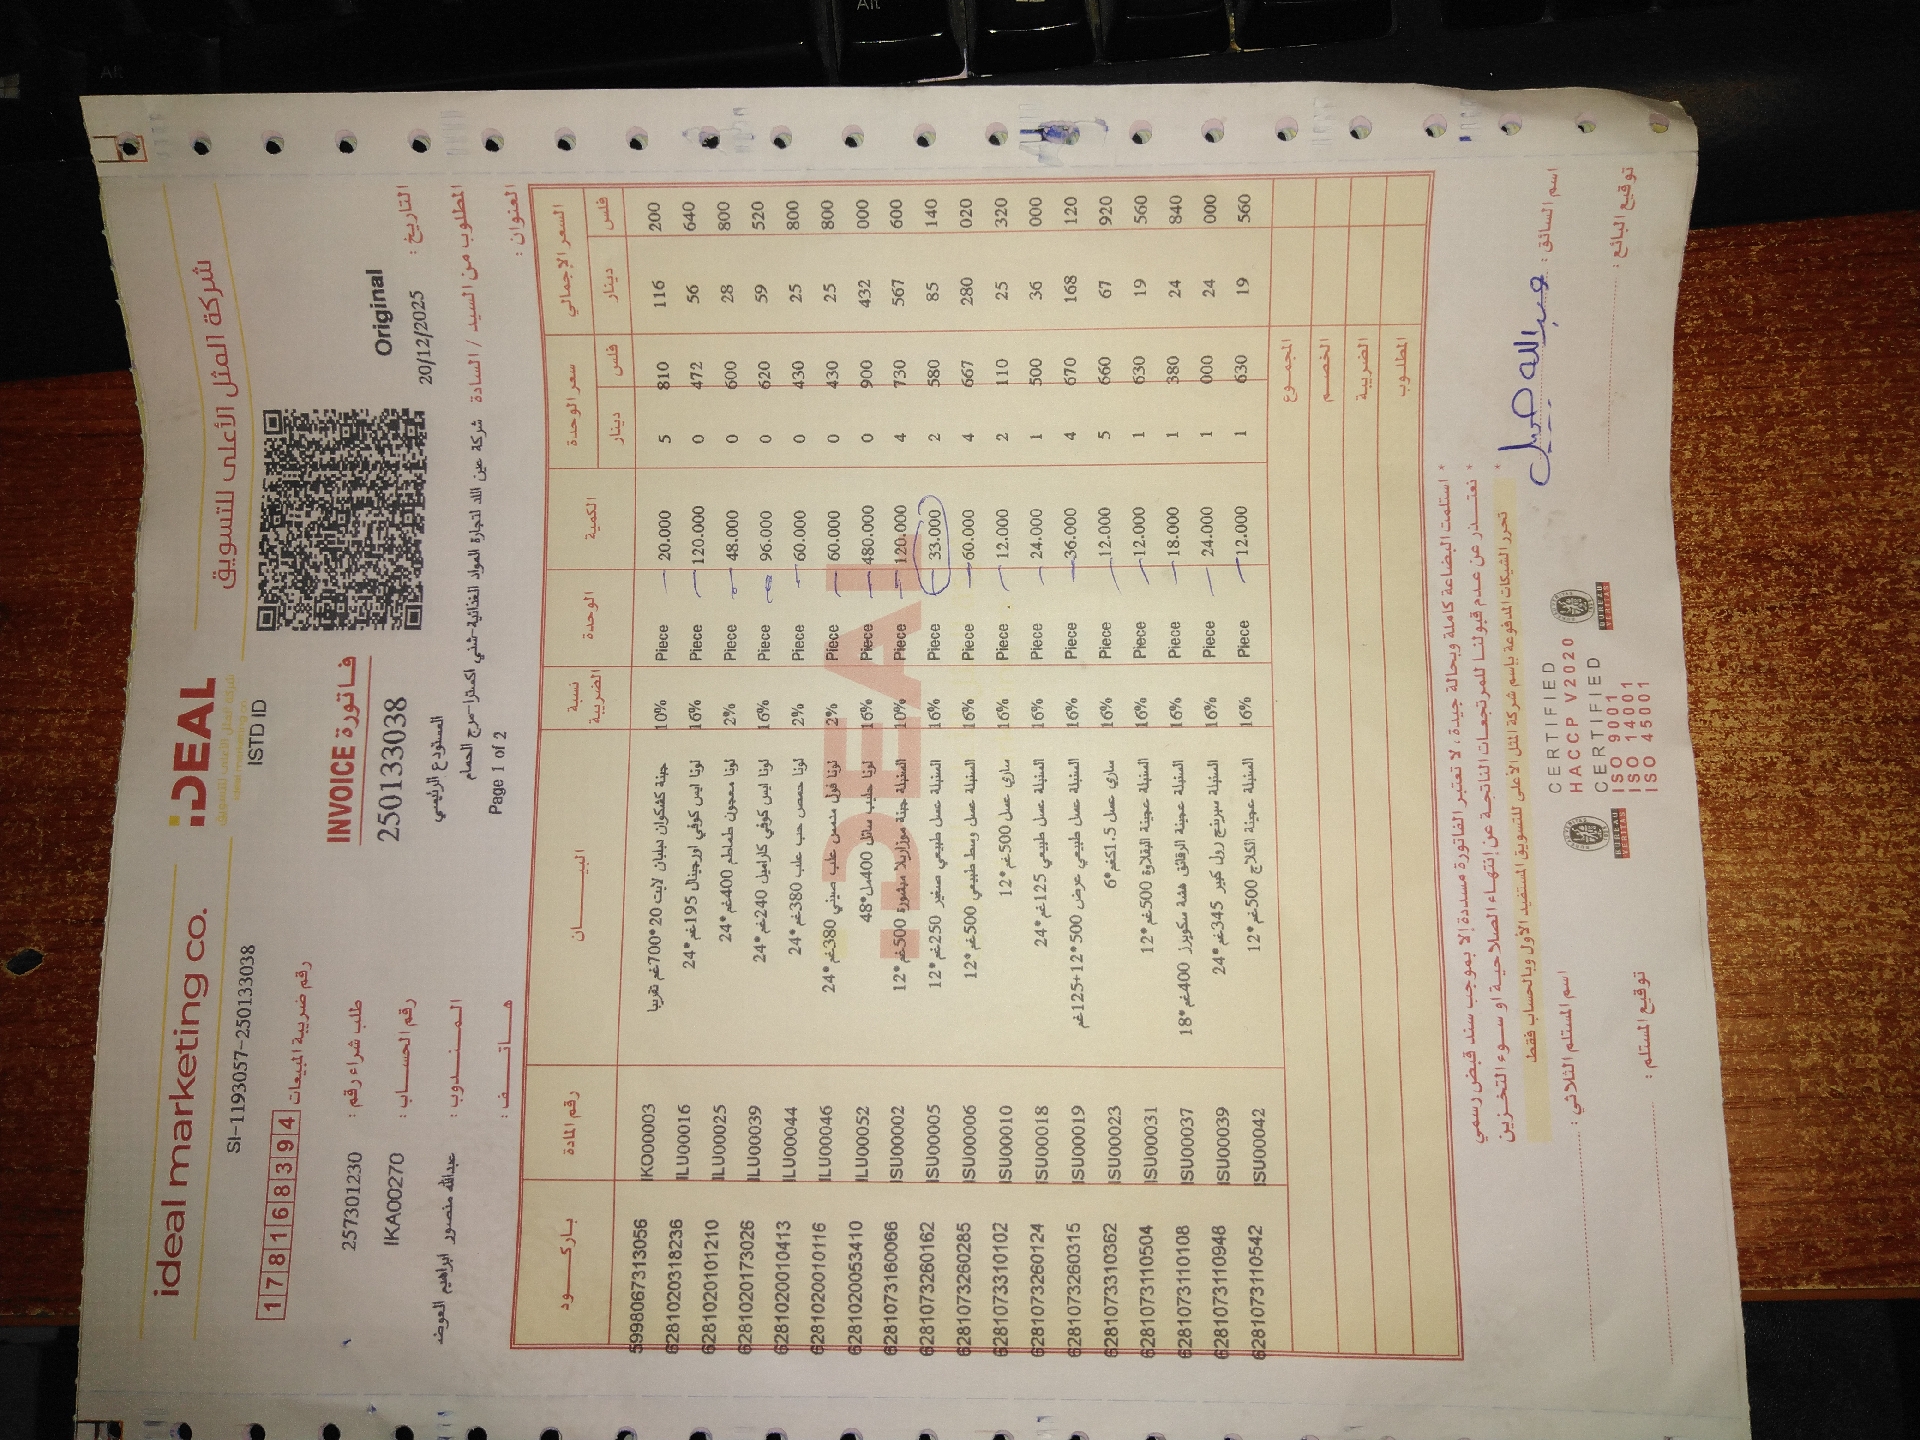 ideal marketing co. iDEAL شركة المثل الأعلى للتسويق
SI-1193057-250133038 ISTD ID
178168394 رقم ضريبة المبيعات
INVOICE فاتورة
Original
250133038
257301230 طلب شراء رقم :
20/12/2025 التاريخ :
IKA00270 رقم الحساب :
المستودع الرئيسي
عبدالله منصور ابراهيم العوضه المندوب :
شركة عين اللد لتجارة المواد الغذائية-شني اكسترا-مرج الحمام المطلوب من السيد / السادة
هاتف : Page 1 of 2 العنوان :
باركود رقم المادة البيان نسبة الضريبة الوحدة الكمية سعر الوحدة السعر الإجمالي
دينار فلس دينار فلس
5998067313056 IKO00003 جبنة كشكوان ديليان لايت 20*700غم تقريبا 10% Piece 20.000 5 810 116 200
6281020318236 ILU00016 لونا ايس كوفي اورجينال 195غم*24 16% Piece 120.000 0 472 56 640
6281020101210 ILU00025 لونا معجون طماطم 400غم*24 2% Piece 48.000 0 600 28 800
6281020173026 ILU00039 لونا ايس كوفي كاراميل 240غم*24 16% Piece 96.000 0 620 59 520
6281020010413 ILU00044 لونا حمص حب علب 380غم*24 2% Piece 60.000 0 430 25 800
6281020010116 ILU00046 لونا فول مدمس علب صيني 380غم*24 2% Piece 60.000 0 430 25 800
6281020053410 ILU00052 لونا حليب سائل 400مل*48 16% Piece 480.000 0 900 432 000
6281073160066 ISU00002 السنبلة جبنة موزاريلا مبشورة 500غم*12 10% Piece 120.000 4 730 567 600
6281073260162 ISU00005 السنبلة عسل طبيعي صغير 250غم*12 16% Piece 33.000 2 580 85 140
6281073260285 ISU00006 السنبلة عسل وسط طبيعي 500غم*12 16% Piece 60.000 4 667 280 020
6281073310102 ISU00010 ساري عسل 500غم*12 16% Piece 12.000 2 110 25 320
6281073260124 ISU00018 السنبلة عسل طبيعي 125غم*24 16% Piece 24.000 1 500 36 000
6281073260315 ISU00019 السنبلة عسل طبيعي عرض 500*12+125غم 16% Piece 36.000 4 670 168 120
6281073310362 ISU00023 ساري عسل 1.5كغم*6 16% Piece 12.000 5 660 67 920
6281073110504 ISU00031 السنبلة عجينة البقلاوة 500غم*12 16% Piece 12.000 1 630 19 560
6281073110108 ISU00037 السنبلة عجينة الرقائق هشة سكويرز 400غم*18 16% Piece 18.000 1 380 24 840
6281073110948 ISU00039 السنبلة سبرينج رول كبير 345غم*24 16% Piece 24.000 1 000 24 000
6281073110542 ISU00042 السنبلة عجينة الكلاج 500غم*12 16% Piece 12.000 1 630 19 560
المجموع
الخصم
الضريبة
المطلوب
* استلمت البضاعة كاملة وبحالة جيدة، لا تعتبر الفاتورة مسددة إلا بموجب سند قبض رسمي
* نعتذر عن عدم قبولنا للمرتجعات الناتجة عن إنتهاء الصلاحية او سوء التخزين
* تحرر الشيكات المدفوعة بإسم شركة المثل الأعلى للتسويق المستفيد الأول وبالحساب فقط
اسم المستلم الثلاثي :
اسم السائق :
توقيع المستلم :
توقيع البائع :
CERTIFIED
HACCP V2020
CERTIFIED
ISO 9001
ISO 14001
ISO 45001
BUREAU VERITAS
BUREAU VERITAS